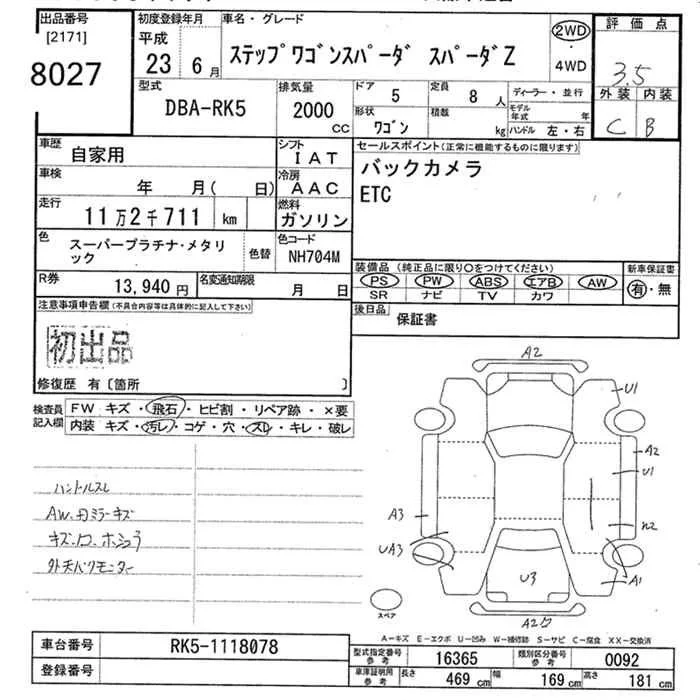 出品番号 [2171] 8027
初度登録年月 平成 23 6月
車名・グレード ステップワゴンスパーダ スパーダZ
2WD・4WD
評価点 3.5
外装 内装
C B
型式 DBA-RK5
排気量 2000 CC
ドア 5
定員 8人
形状 ワゴン
積載 kg
ディーラー・並行
モデル年式 年
ハンドル 左・右
車歴 自家用
シフト IAT
車検 年 月( 日)
冷房 AAC
走行 11万2千711 km
燃料 ガソリン
色 スーパープラチナ・メタリック
色替
色コード NH704M
R券 13,940円
名変通知期限 月 日
セールスポイント(正常に機能するものに限ります)
バックカメラ
ETC
装備品 (純正品に限り○をつけてください)
PS PW ABS エアB AW
SR ナビ TV カワ
新車保証書
有・無
後日品 保証書
注意事項申告欄(不具合内容等は具体的に記入して下さい)
初出品
修復歴 有〔箇所 〕
検査員記入欄
FW キズ・飛石・ヒビ割・リペア跡・×要
内装 キズ・汚レ・コゲ・穴・スレ・キレ・破レ
ハンドルスレ
AW、
キズ、
モニター
A2
U1
A2
U1
A3
UA3
U3
A1
A2
スペア
A−キズ E−エクボ U−凹み W−補修跡 S−サビ C−腐食 XX−交換済
車台番号 RK5-1118078
登録番号
型式指定番号 参考 16365
類別区分番号 参考 0092
車庫証明用 参考 長さ 469 cm 幅 169 cm 高さ 181 cm